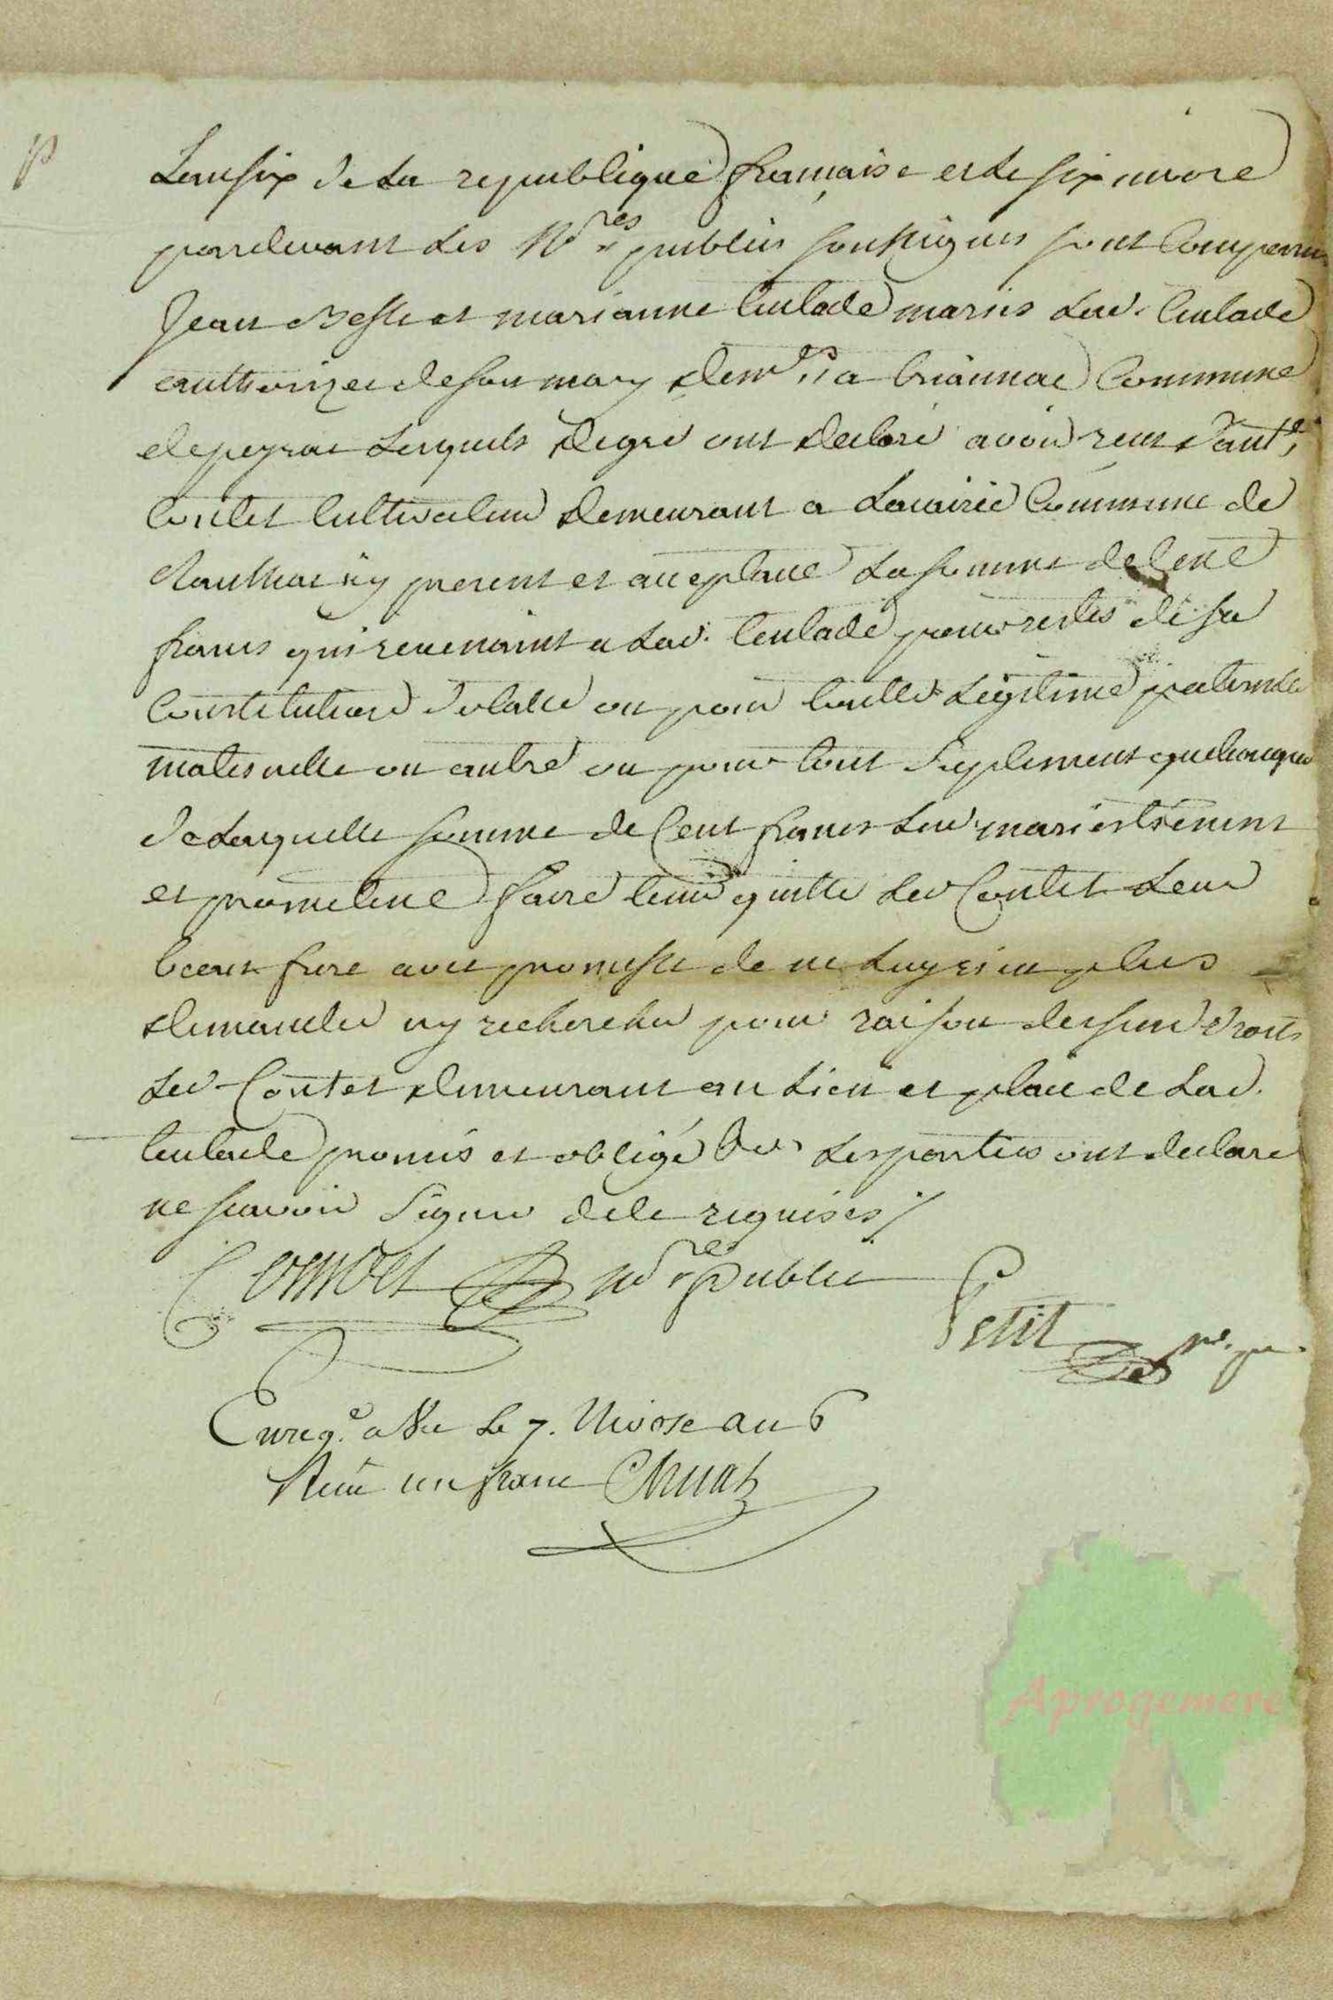 p
Lan six de la republique francaise et le six nivose
pardevant les No.res publics soussignes sont comparu
Jean Besse et marianne teulade maries lad. teulade
authorizee de son mary dem.ts a
commune
de peyrat lesquels de gré ont declaré avoir recu d'ant.e
Contet cultivateur demeurant a commune de
icy present et acceptant la somme de cent
francs qui revenaint a lad. teulade pour restes de sa
Constitution dotalle ou pour tout legitime paternelle
maternelle ou autre ou pour tout suplement quelconque
de laquelle somme de Cent francs led. maries tienent
et promettent faire tenir quitte led Contet leur
beau frere avec promesse de ne luy rien plus
demander ny rechercher pour raison de droits
led. Contet demeurant au lieu et place de lad.
teulade promis et obligé les parties ont declare
ne scavoir signer de ce requises /
no.re public
Petit no. pu.
Enreg.e a le 7. Nivose an 6
Recu un franc
Aprogemere